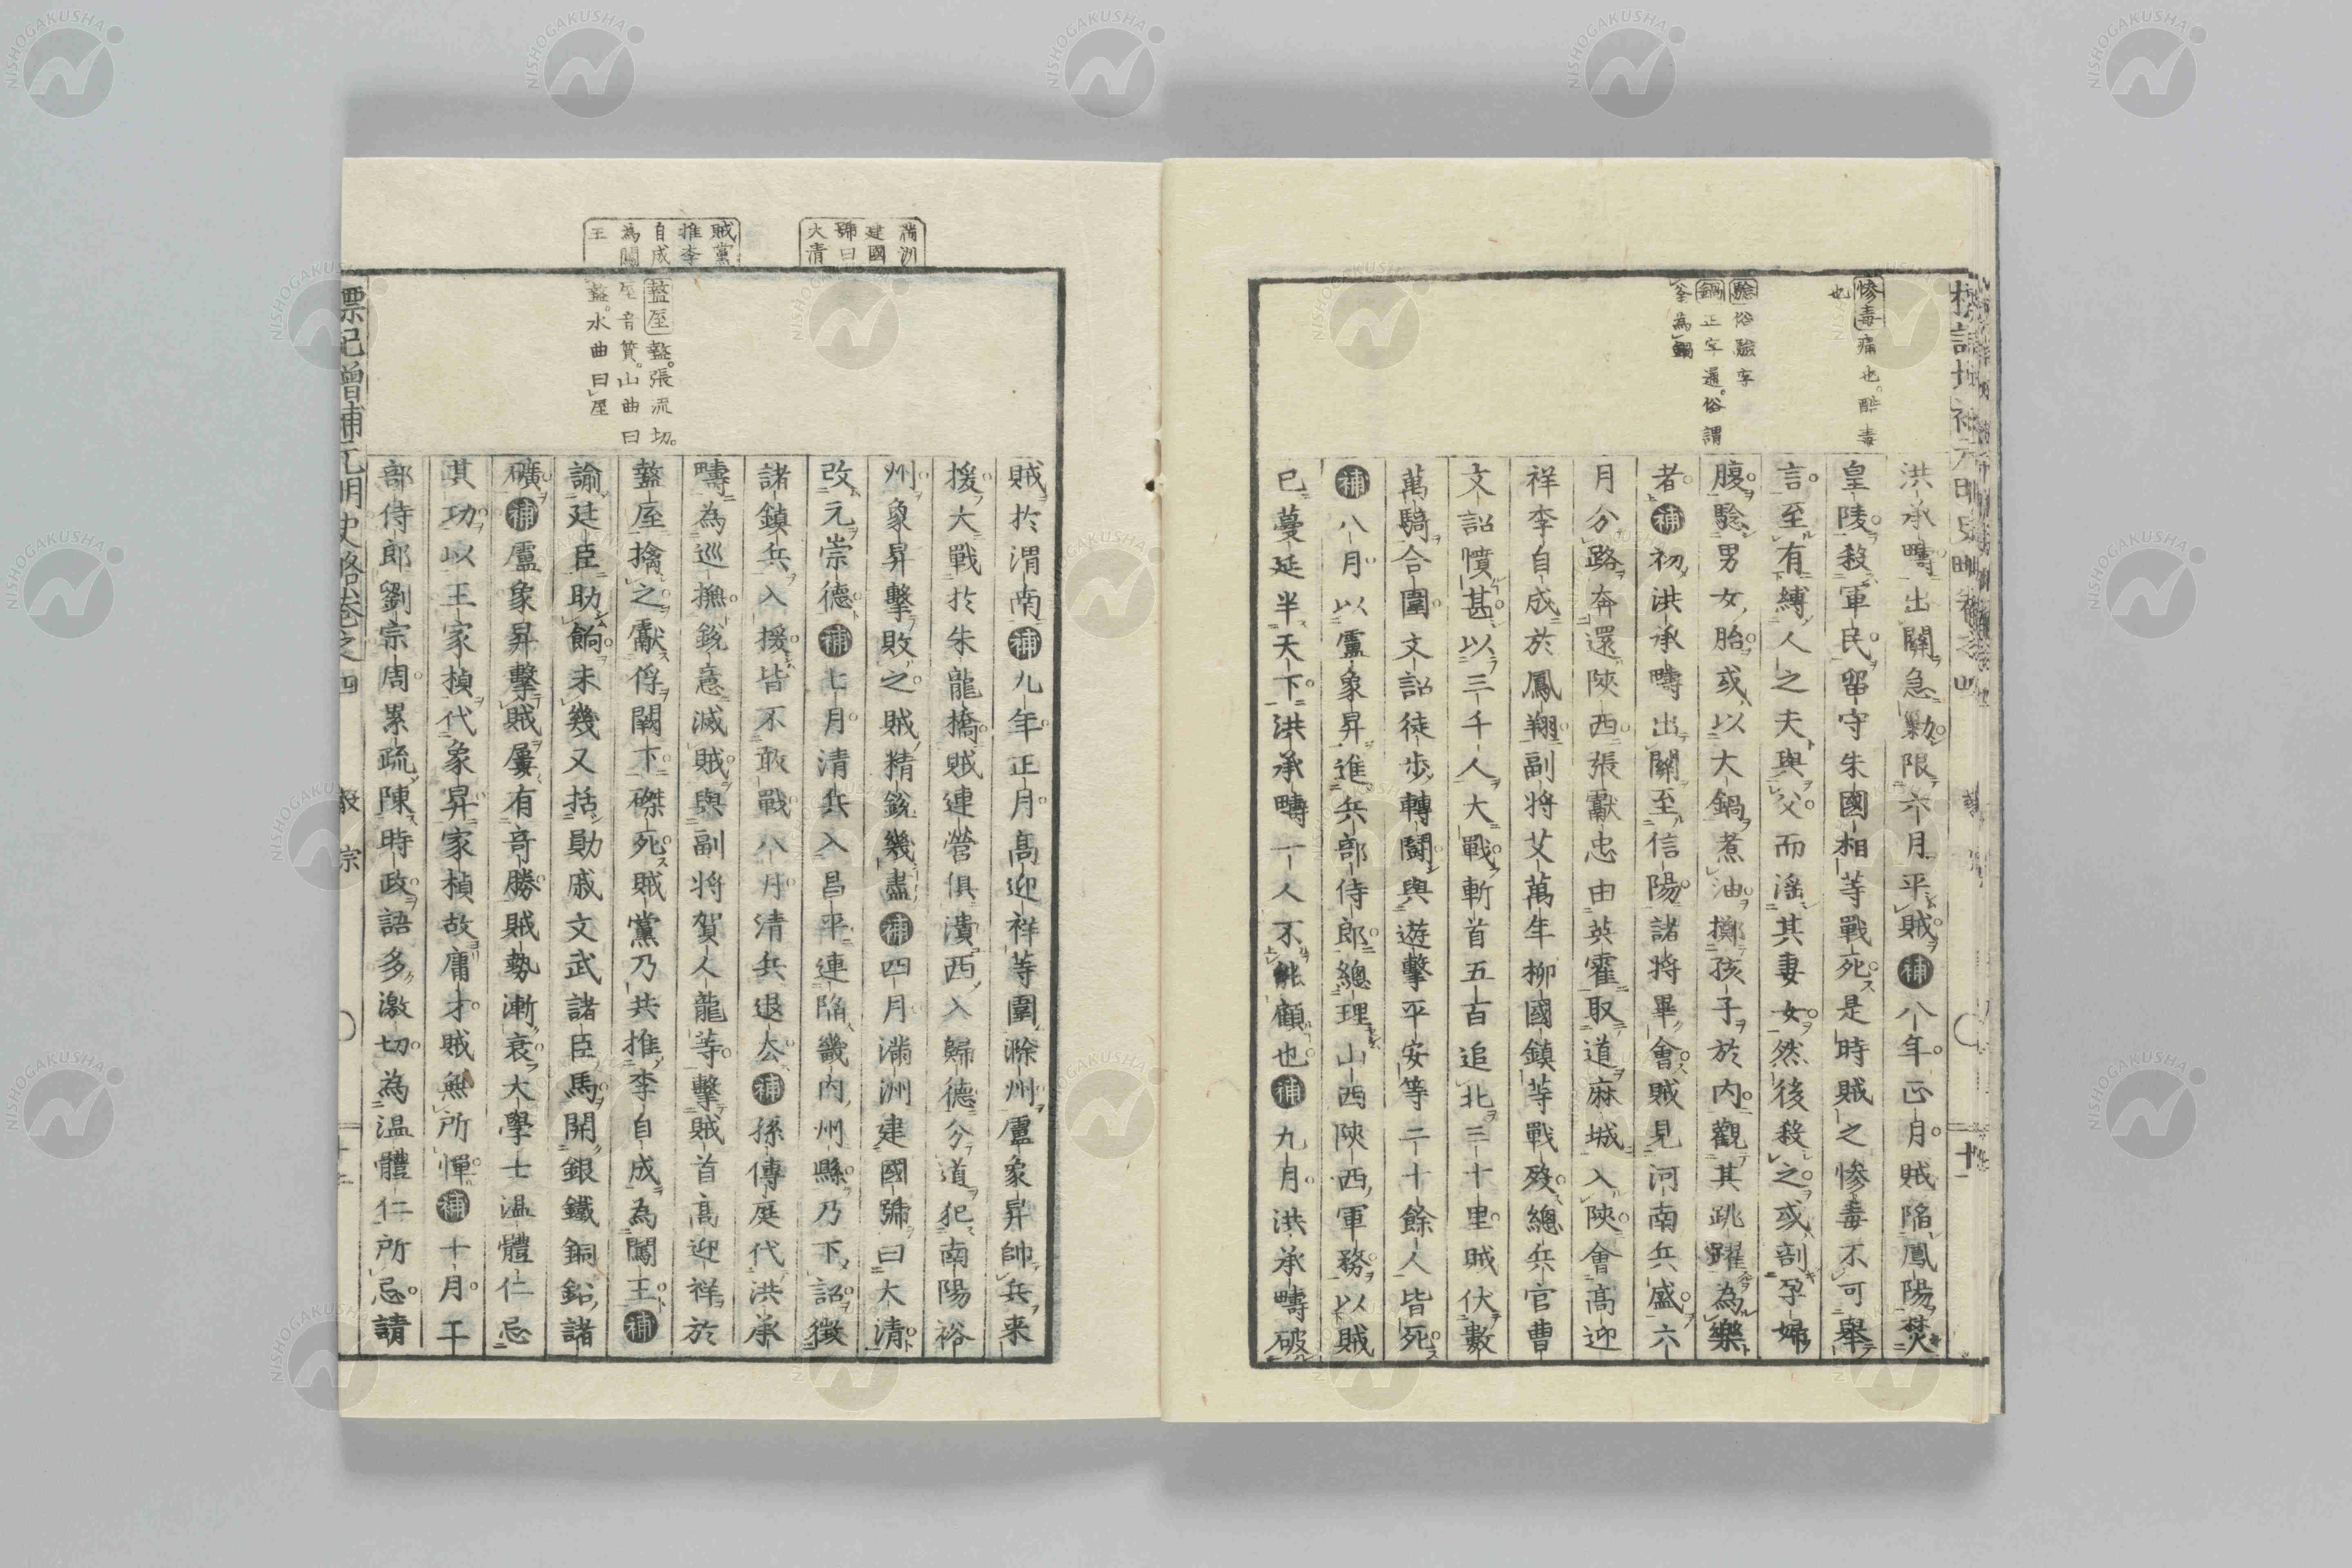 慘毒痛也。酷毒
也
驗俗驗字
鍋正字通。俗謂
釜為鍋
洪承疇出關急勦限六月平賊補八年正月賊陷鳳陽焚
皇陵殺軍民留守朱國相等戰死是時賊之慘毒不可舉
言至有縛人之夫與父而淫其妻女然後殺之或剖孕婦
腹驗男女胎或以大鍋煮油擲孩子於内觀其跳躍為樂
者補初洪承疇出關至信陽諸將畢會賊見河南兵盛六
月分路奔還陝西張獻忠由英霍取道麻城入陝會高迎
祥李自成於鳳翔副将艾萬年柳國鎮等戰歿總兵官曹
文詔憤甚以三千人大戰斬首五百追北三十里賊伏數
萬騎合圍文詔徒步轉鬪與遊擊平安等二十餘人皆死
補八月以盧象昇進兵部侍郎總理山西陝西軍務以賊
已蔓延半天下洪承疇一人不能顧也補九月洪承疇破
滿洲
建國
號曰
大清
賊黨
推李
自成
為闖
王
盩厔盩。張流切。
厔音質。山曲曰
盩。水曲曰厔
賊於渭南補九年正月高迎祥等圍滁州盧象昇帥兵来
援大戰於朱龍橋賊連營俱潰西入歸德分道犯南陽裕
州象昇擊敗之賊精銳幾盡補四月滿洲建國號曰大清
改元崇德補七月清兵入昌平連陷畿内州縣乃下詔徵
諸鎮兵入援皆不敢戰八月清兵退去補孫傳庭代洪承
疇為巡撫銳意滅賊與副将賀人龍等擊賊首高迎祥於
盩厔擒之獻俘闕下磔死賊黨乃共推李自成為闖王補
諭廷臣助餉未幾又括勛戚文武諸臣馬開銀鐵銅鉛諸
礦補盧象昇擊賊屢有奇勝賊勢漸衰大學士温體仁忌
其功以王家楨代象昇家楨故庸才賊無所憚補十月工
部侍郎劉宗周累疏陳時政語多激切為温體仁所忌請
標記增補元明史略卷之四